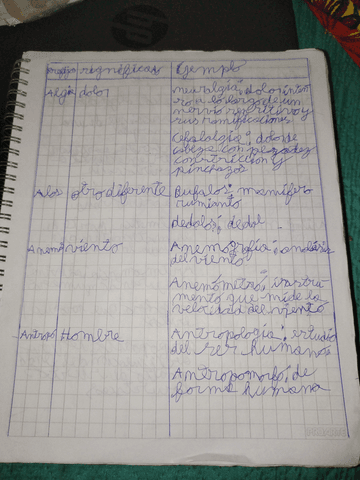 significado Ejemplo
Algia dolor neuralgia: dolor inten
nervio sensitivo y
sus ramificaciones
Cefalalgia: dolor de
cabeza con pesadez
contricción y
pinchazos
Alos otro diferente Bufalos: mamífero
rumiante
dedalos: dedal
Anemo viento Anemografía: analisis
del viento
Anemómetro: instru
mento que mide la
velocidad del viento
Antropo Hombre Antropologia: estudio
del ser humano
Antropomorfo: de
forma humana